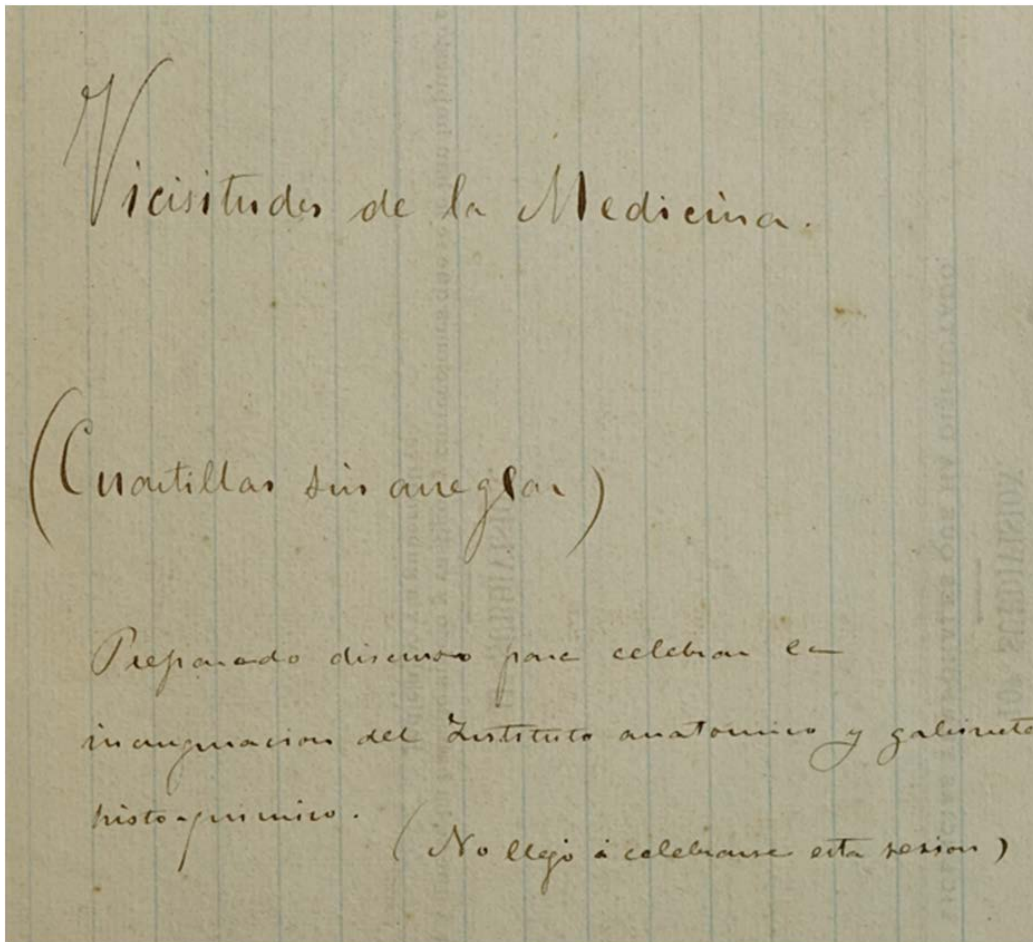 Vicisitudes de la Medicina.
(Cuartillas sin arreglar)
Preparado discurso para celebrar la
inauguracion del Instituto anatomico y gabinete
histo-quimico.
(No llegó á celebrarse esta sesion)